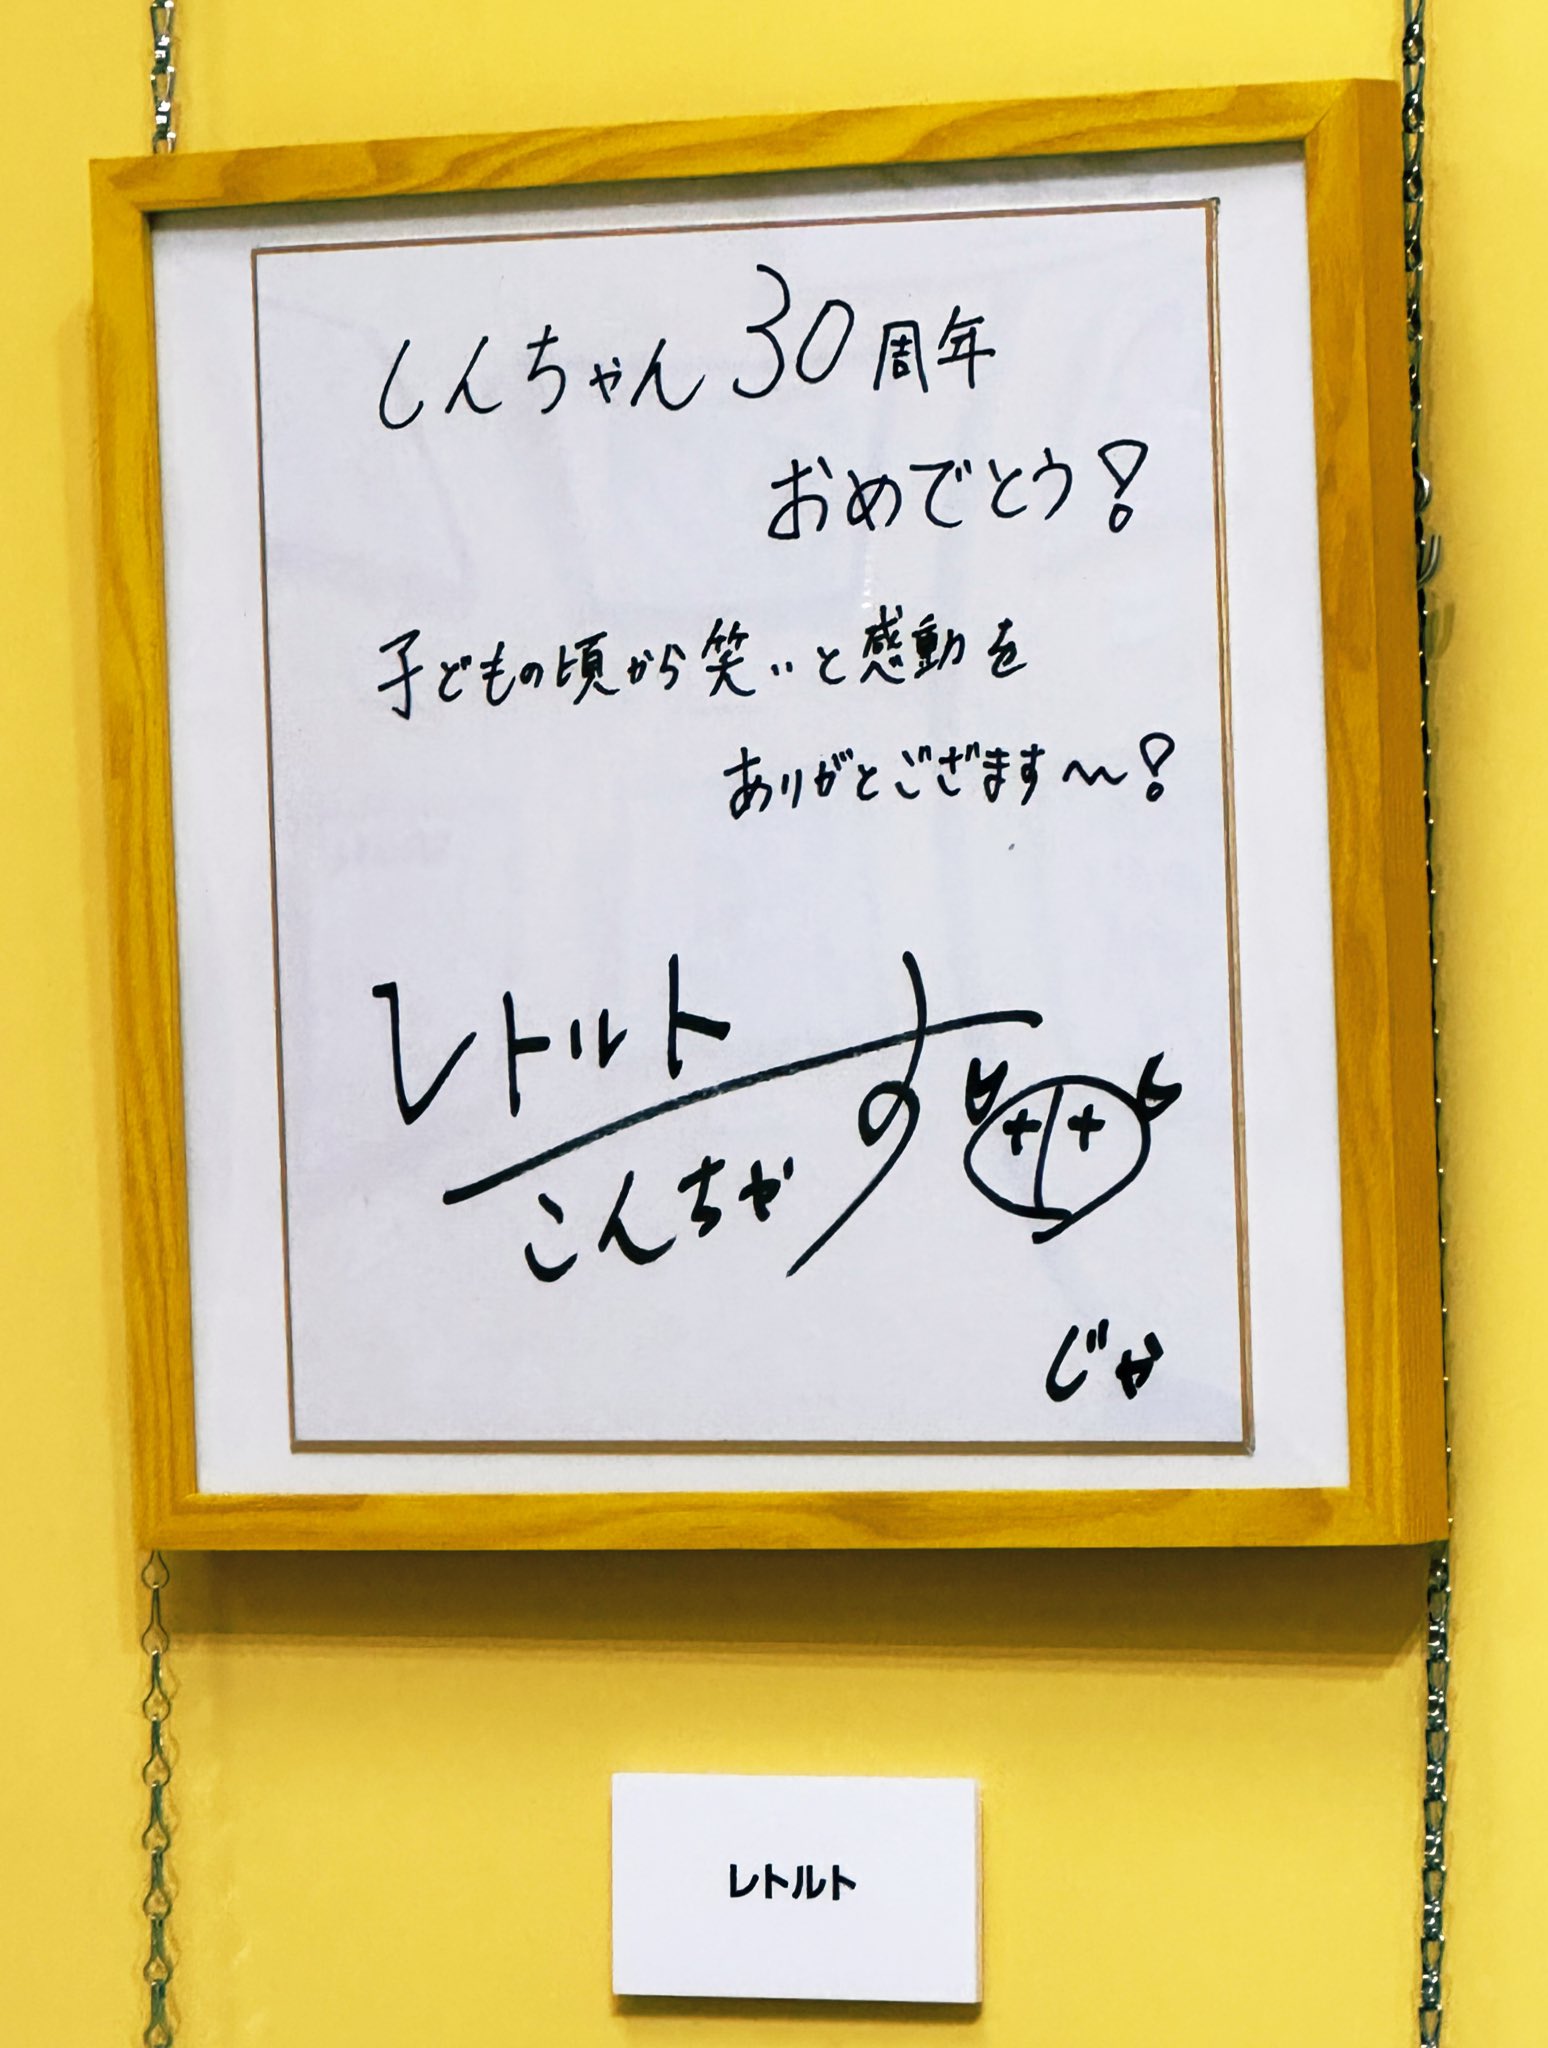 しんちゃん30周年
おめでとう!
子どもの頃から笑いと感動を
ありがとござます〜!
レトルト
こんちゃす
じゃ
レトルト